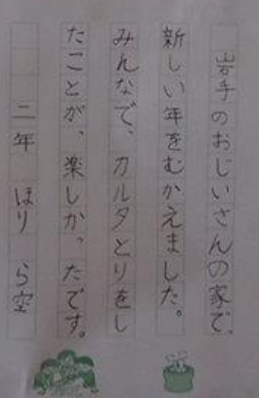 岩手のおじいさんの家で、
新しい年をむかえました。
みんなで、カルタとりをし
たことが、楽しかったです。
二年 ほり ら空